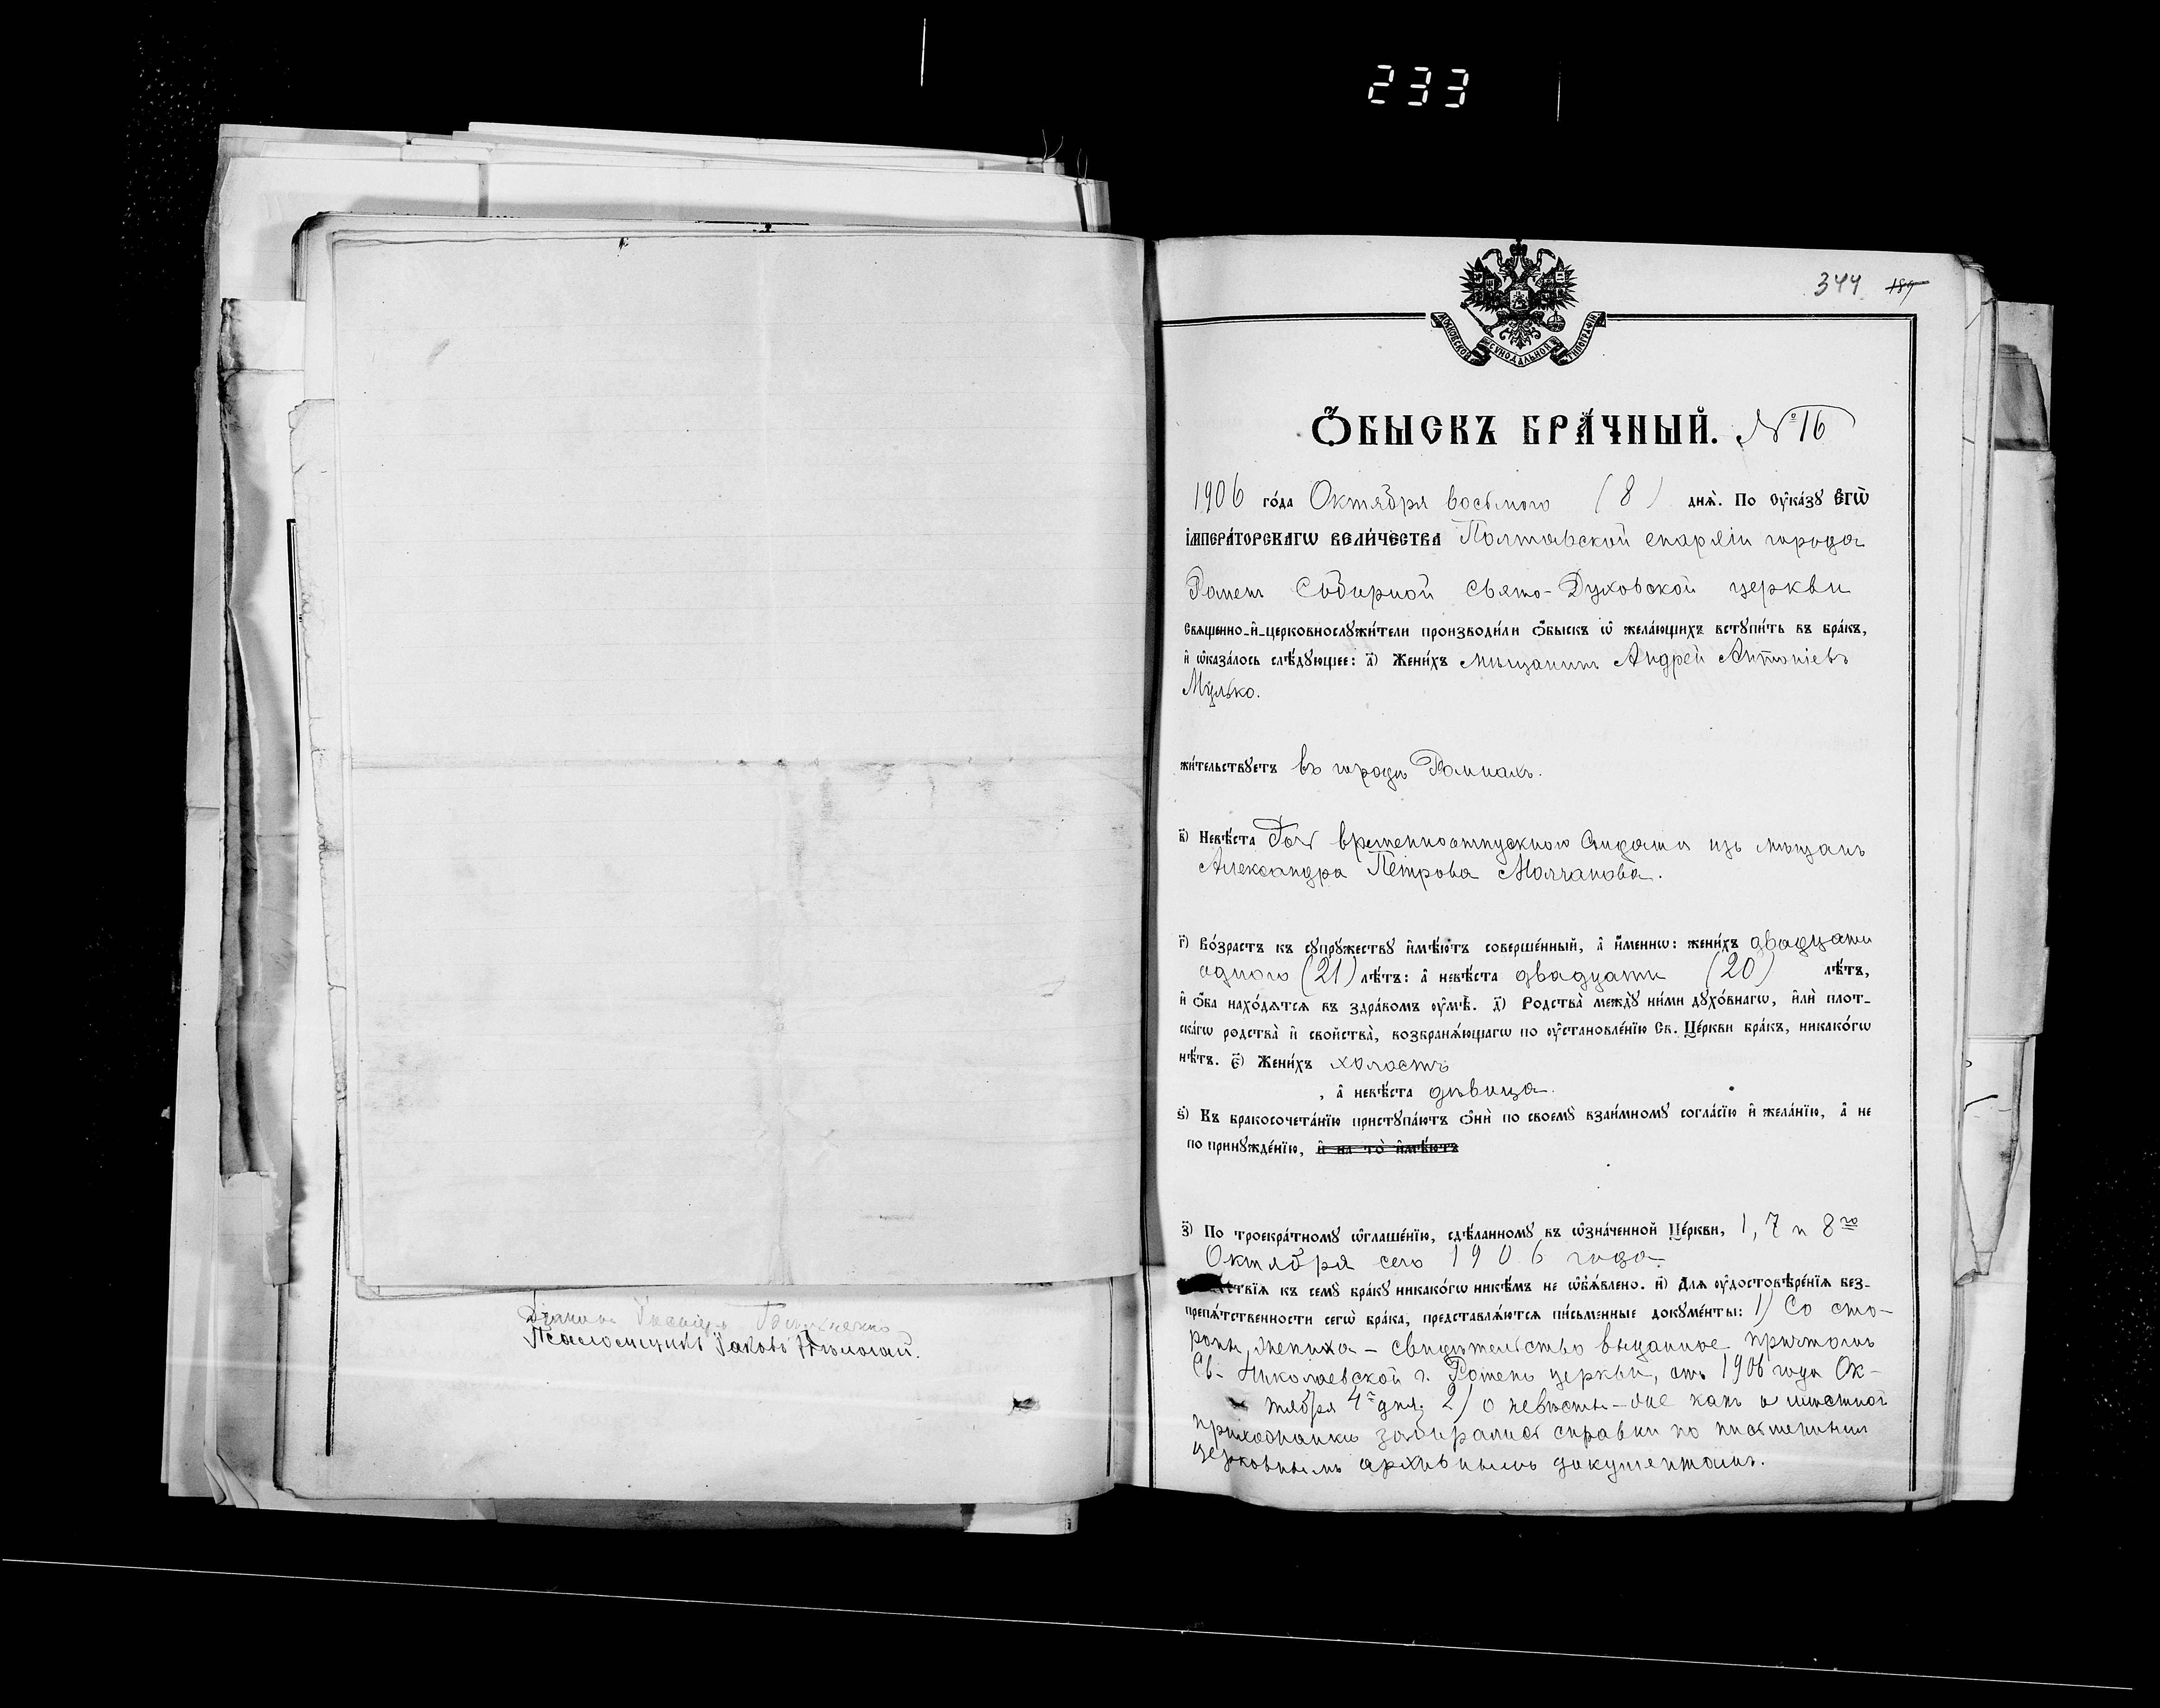 233
344 189
МОСКОВСКОЙ СѴНОДАЛЬНОЙ ТИПОГРАФІИ
Ѻ҆БЫСКЪ БРА́ЧНЫЙ. № 16
1906 го́да Октября восьмого (8) днѧ̀. По ᲂу҆ка́зꙋ Є҆ГѠ̀
І҆МПЕРА́ТОРСКАГѠ ВЕЛИ́ЧЕСТВА Полтавской епархіи города
Роменъ Соборной Свято-Духовской церкви
Свѧщенно-и҆-церковнослꙋжи́тели производи́ли ѻ҆́быскъ ѡ҆ жела́ющихъ встꙋпи́ть въ бра́къ,
и҆ ѡ҆каза́лось слѣ́дꙋющее: а҃) Жени́хъ мѣщанинъ Андрей Антоніевъ
Мулько.
жи́тельствꙋетъ въ городѣ Ромнахъ.
в҃) Невѣ́ста Дочь временноотпускного Солдата изъ мѣщанъ
Александра Петрова Молчанова.
г҃) Во́зрастъ къ сꙋпрꙋ́жествꙋ и҆мѣ́ютъ соверше́нный, а҆ и҆́меннѡ: жени́хъ двадцати
одного (21) лѣ́тъ: а҆ невѣ́ста двадцати (20) лѣ́тъ,
и҆ ѻ҆́ба нахо́дѧтсѧ въ здра́вомъ ᲂу҆мѣ̀. д҃) Родства̀ междꙋ̀ ни́ми дꙋхо́внагѡ, и҆лѝ плот-
ска́гѡ родства̀ и҆ сво́йства̀, возбранѧ́ющагѡ по ᲂу҆становле́нїю Св. Це́ркви бра́къ, никако́гѡ
нѣ́тъ. є҃) Жени́хъ холостъ
, а҆ невѣ́ста дѣвица.
ѕ҃) Къ бракосочета́нїю пристꙋпа́ютъ ѻ҆нѝ по своемꙋ̀ взаи́мномꙋ согла́сїю и҆ жела́нїю, а҆ не
по принꙋжде́нїю, и҆ на то̀ и҆мѣ́ютъ
з҃) По троекра́тномꙋ ѡ҆глаше́нїю, сдѣ́ланномꙋ въ ѡ҆зна́ченной Це́ркви, 1, 7 и 8го
Октября сего 1906 года
ствїѧ къ семꙋ̀ бра́кꙋ никако́гѡ никѣ́мъ не ѡ҆б̾ѧ́влено. и҃) Длѧ ᲂу҆достовѣре́нїѧ без-
препѧ́тственности сегѡ̀ бра́ка, представлѧ́ютсѧ пи́сьменные докꙋме́нты: 1) Со сто-
роны жениха – свидѣтельство выданное причтомъ
Св. Николаевской г. Роменъ церкви, отъ 1906 года Ок-
тября 4го дня; 2) о невѣстѣ – же какъ о мѣстной
прихожанкѣ забирались справки по письменнымъ
церковнымъ архивнымъ документамъ.
Псаломщикъ Іаковъ